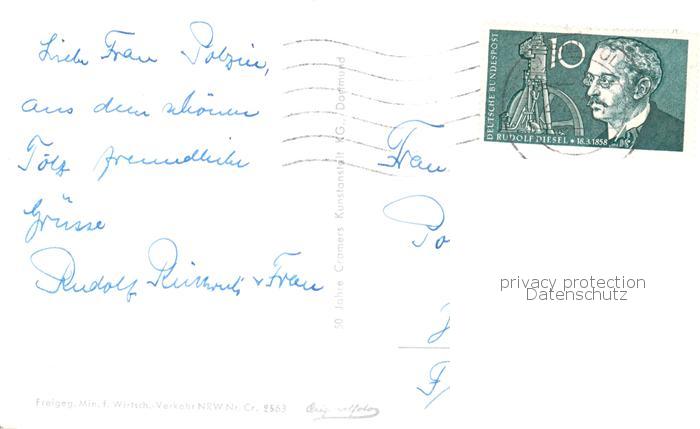 Liebe Frau Polzin,
aus dem schönen
Tölz freundliche
Grüsse
Rudolf & Frau
50 Jahre Cramers Kunstanstalt KG., Dortmund
Freigeg. Min. f. Wirtsch.-Verkehr NRW Nr. Cr. 2563
DEUTSCHE BUNDESPOST
10
RUDOLF DIESEL * 18.3.1858
Frau
Po
privacy protection
Datenschutz